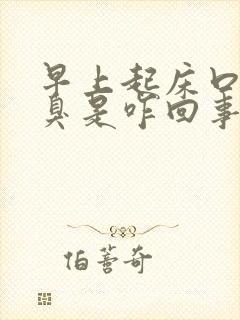 早上起床口
臭是咋回事
伯薯奇